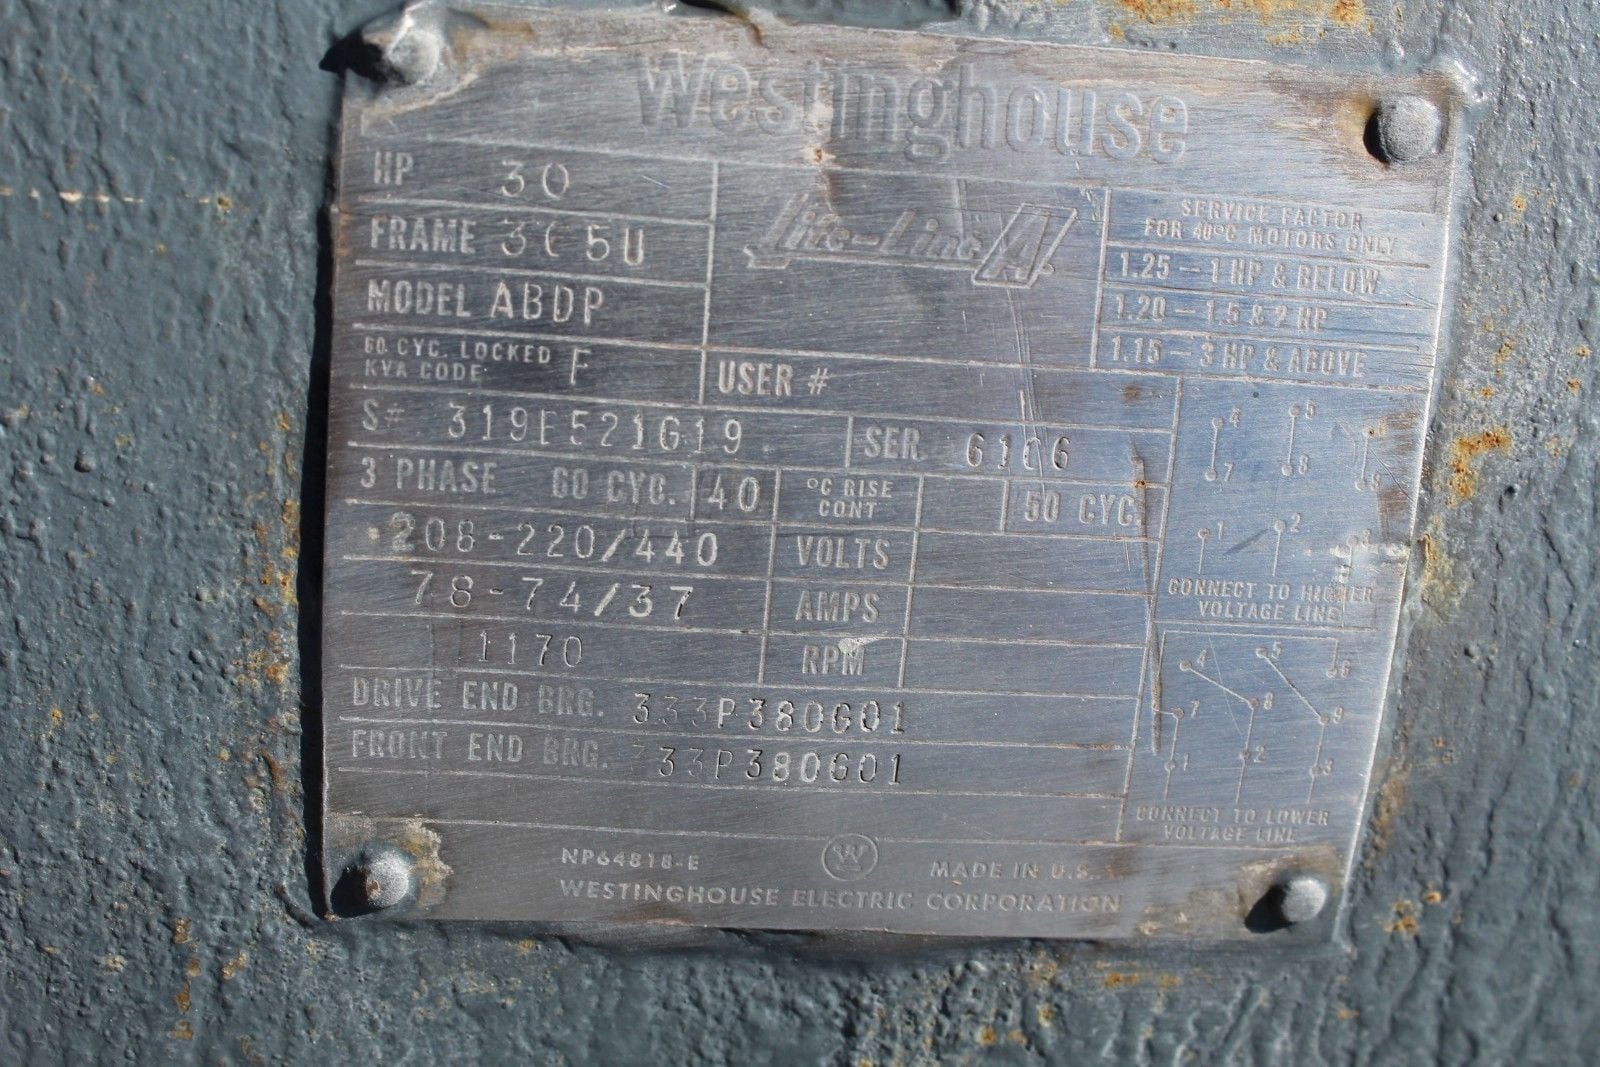 Westinghouse
HP 30
FRAME 365U
MODEL ABDP
60 CYC. LOCKED
KVA CODE F
Life-Line A
SERVICE FACTOR
FOR 40°C MOTORS ONLY
1.25 - 1 HP & BELOW
1.20 - 1.5 & 2 HP
1.15 - 3 HP & ABOVE
USER #
S# 319E521G19 SER. 6106
3 PHASE 60 CYC. 40 °C RISE CONT 50 CYC.
208-220/440 VOLTS
78-74/37 AMPS
1170 RPM
DRIVE END BRG. 333P380G01
FRONT END BRG. 333P380G01
4 5 6
7 8 9
1 2 3
CONNECT TO HIGHER
VOLTAGE LINE
4 5 6
7 8 9
1 2 3
CONNECT TO LOWER
VOLTAGE LINE
NP64818-E W MADE IN U.S.A.
WESTINGHOUSE ELECTRIC CORPORATION